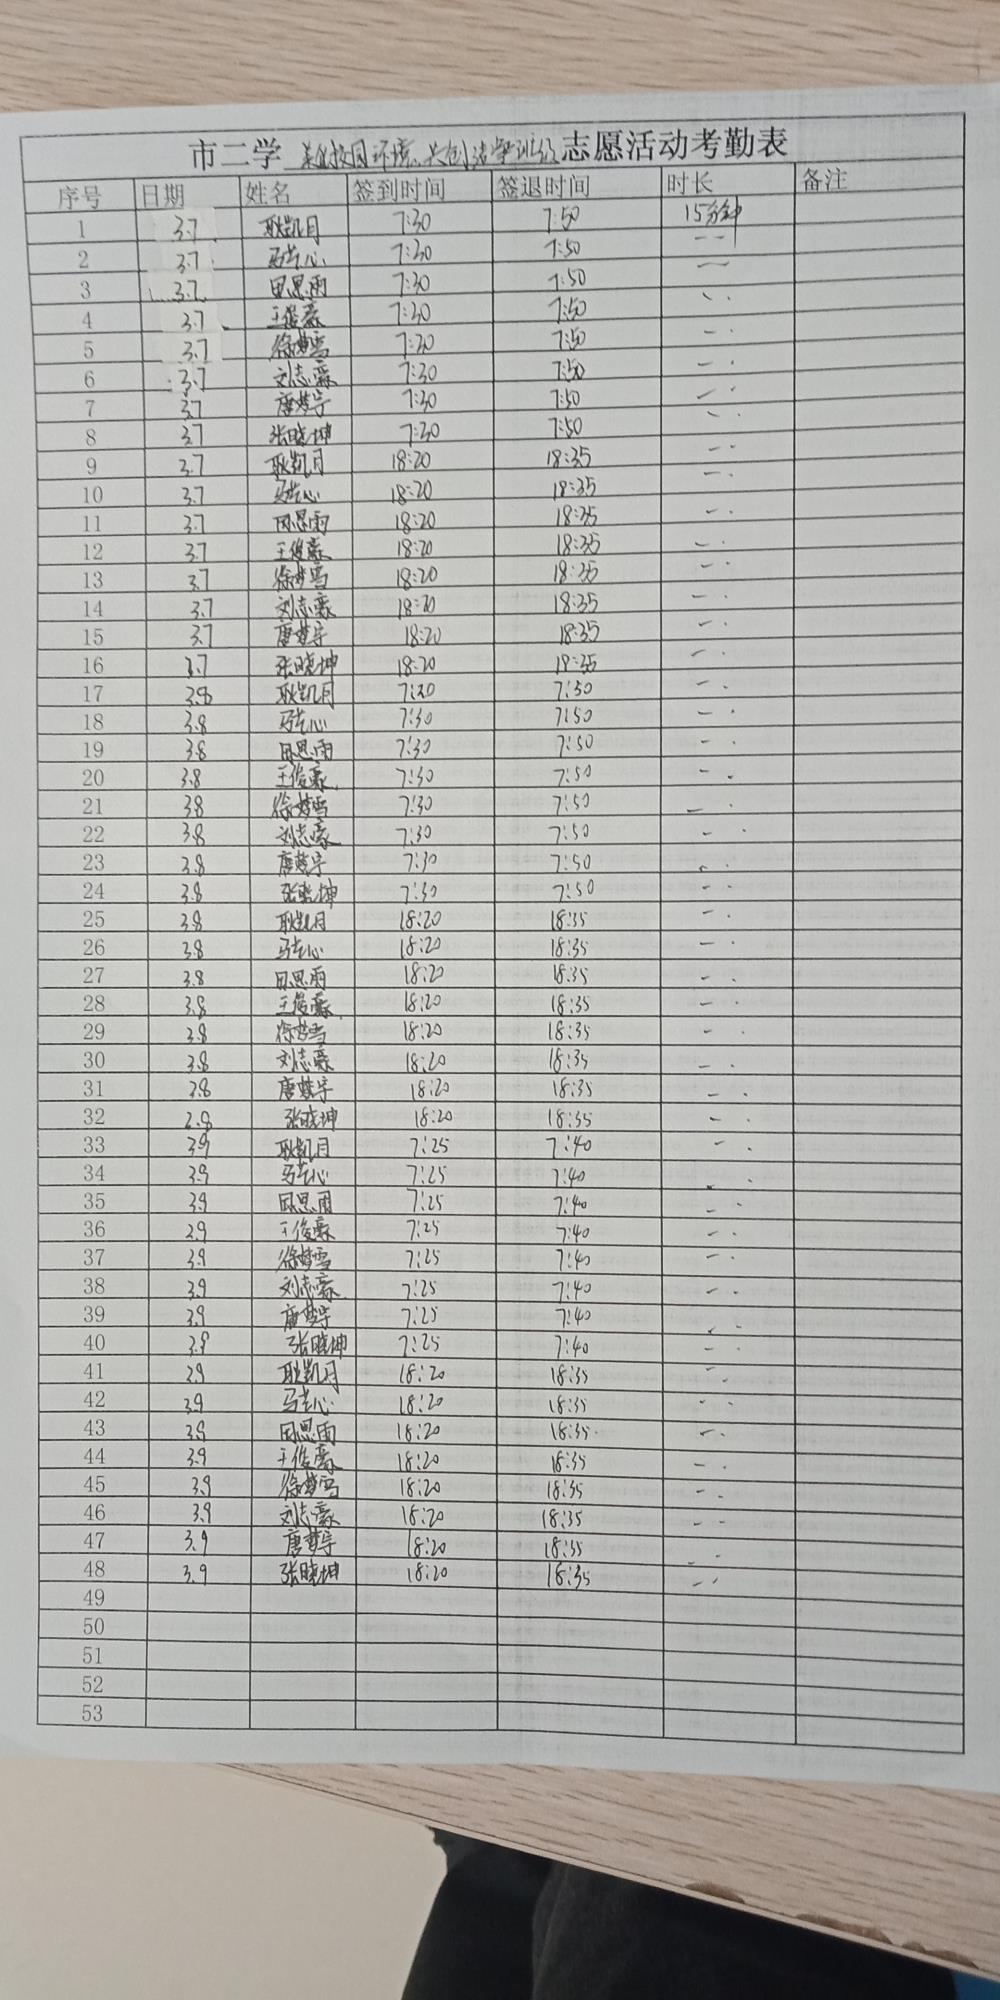 市二学 美化校园环境、共创洁净班级 志愿活动考勤表
序号 日期 姓名 签到时间 签退时间 时长 备注
1 3.7 耿凯月 7:30 7:50 15分钟
2 3.7 马艺心 7:30 7:50
3 3.7 田思雨 7:30 7:50
4 3.7 王俊豪 7:30 7:50
5 3.7 徐梦雪 7:30 7:50
6 3.7 刘志豪 7:30 7:50
7 3.7 唐梦宇 7:30 7:50
8 3.7 张晓坤 7:30 7:50
9 3.7 耿凯月 18:20 18:35
10 3.7 马艺心 18:20 18:35
11 3.7 田思雨 18:20 18:35
12 3.7 王俊豪 18:20 18:35
13 3.7 徐梦雪 18:20 18:35
14 3.7 刘志豪 18:20 18:35
15 3.7 唐梦宇 18:20 18:35
16 3.7 张晓坤 18:20 18:35
17 3.8 耿凯月 7:30 7:50
18 3.8 马艺心 7:30 7:50
19 3.8 田思雨 7:30 7:50
20 3.8 王俊豪 7:30 7:50
21 3.8 徐梦雪 7:30 7:50
22 3.8 刘志豪 7:30 7:50
23 3.8 唐梦宇 7:30 7:50
24 3.8 张晓坤 7:30 7:50
25 3.8 耿凯月 18:20 18:35
26 3.8 马艺心 18:20 18:35
27 3.8 田思雨 18:20 18:35
28 3.8 王俊豪 18:20 18:35
29 3.8 徐梦雪 18:20 18:35
30 3.8 刘志豪 18:20 18:35
31 3.8 唐梦宇 18:20 18:35
32 3.8 张晓坤 18:20 18:35
33 3.9 耿凯月 7:25 7:40
34 3.9 马艺心 7:25 7:40
35 3.9 田思雨 7:25 7:40
36 3.9 王俊豪 7:25 7:40
37 3.9 徐梦雪 7:25 7:40
38 3.9 刘志豪 7:25 7:40
39 3.9 唐梦宇 7:25 7:40
40 3.9 张晓坤 7:25 7:40
41 3.9 耿凯月 18:20 18:35
42 3.9 马艺心 18:20 18:35
43 3.9 田思雨 18:20 18:35
44 3.9 王俊豪 18:20 18:35
45 3.9 徐梦雪 18:20 18:35
46 3.9 刘志豪 18:20 18:35
47 3.9 唐梦宇 18:20 18:35
48 3.9 张晓坤 18:20 18:35
49
50
51
52
53